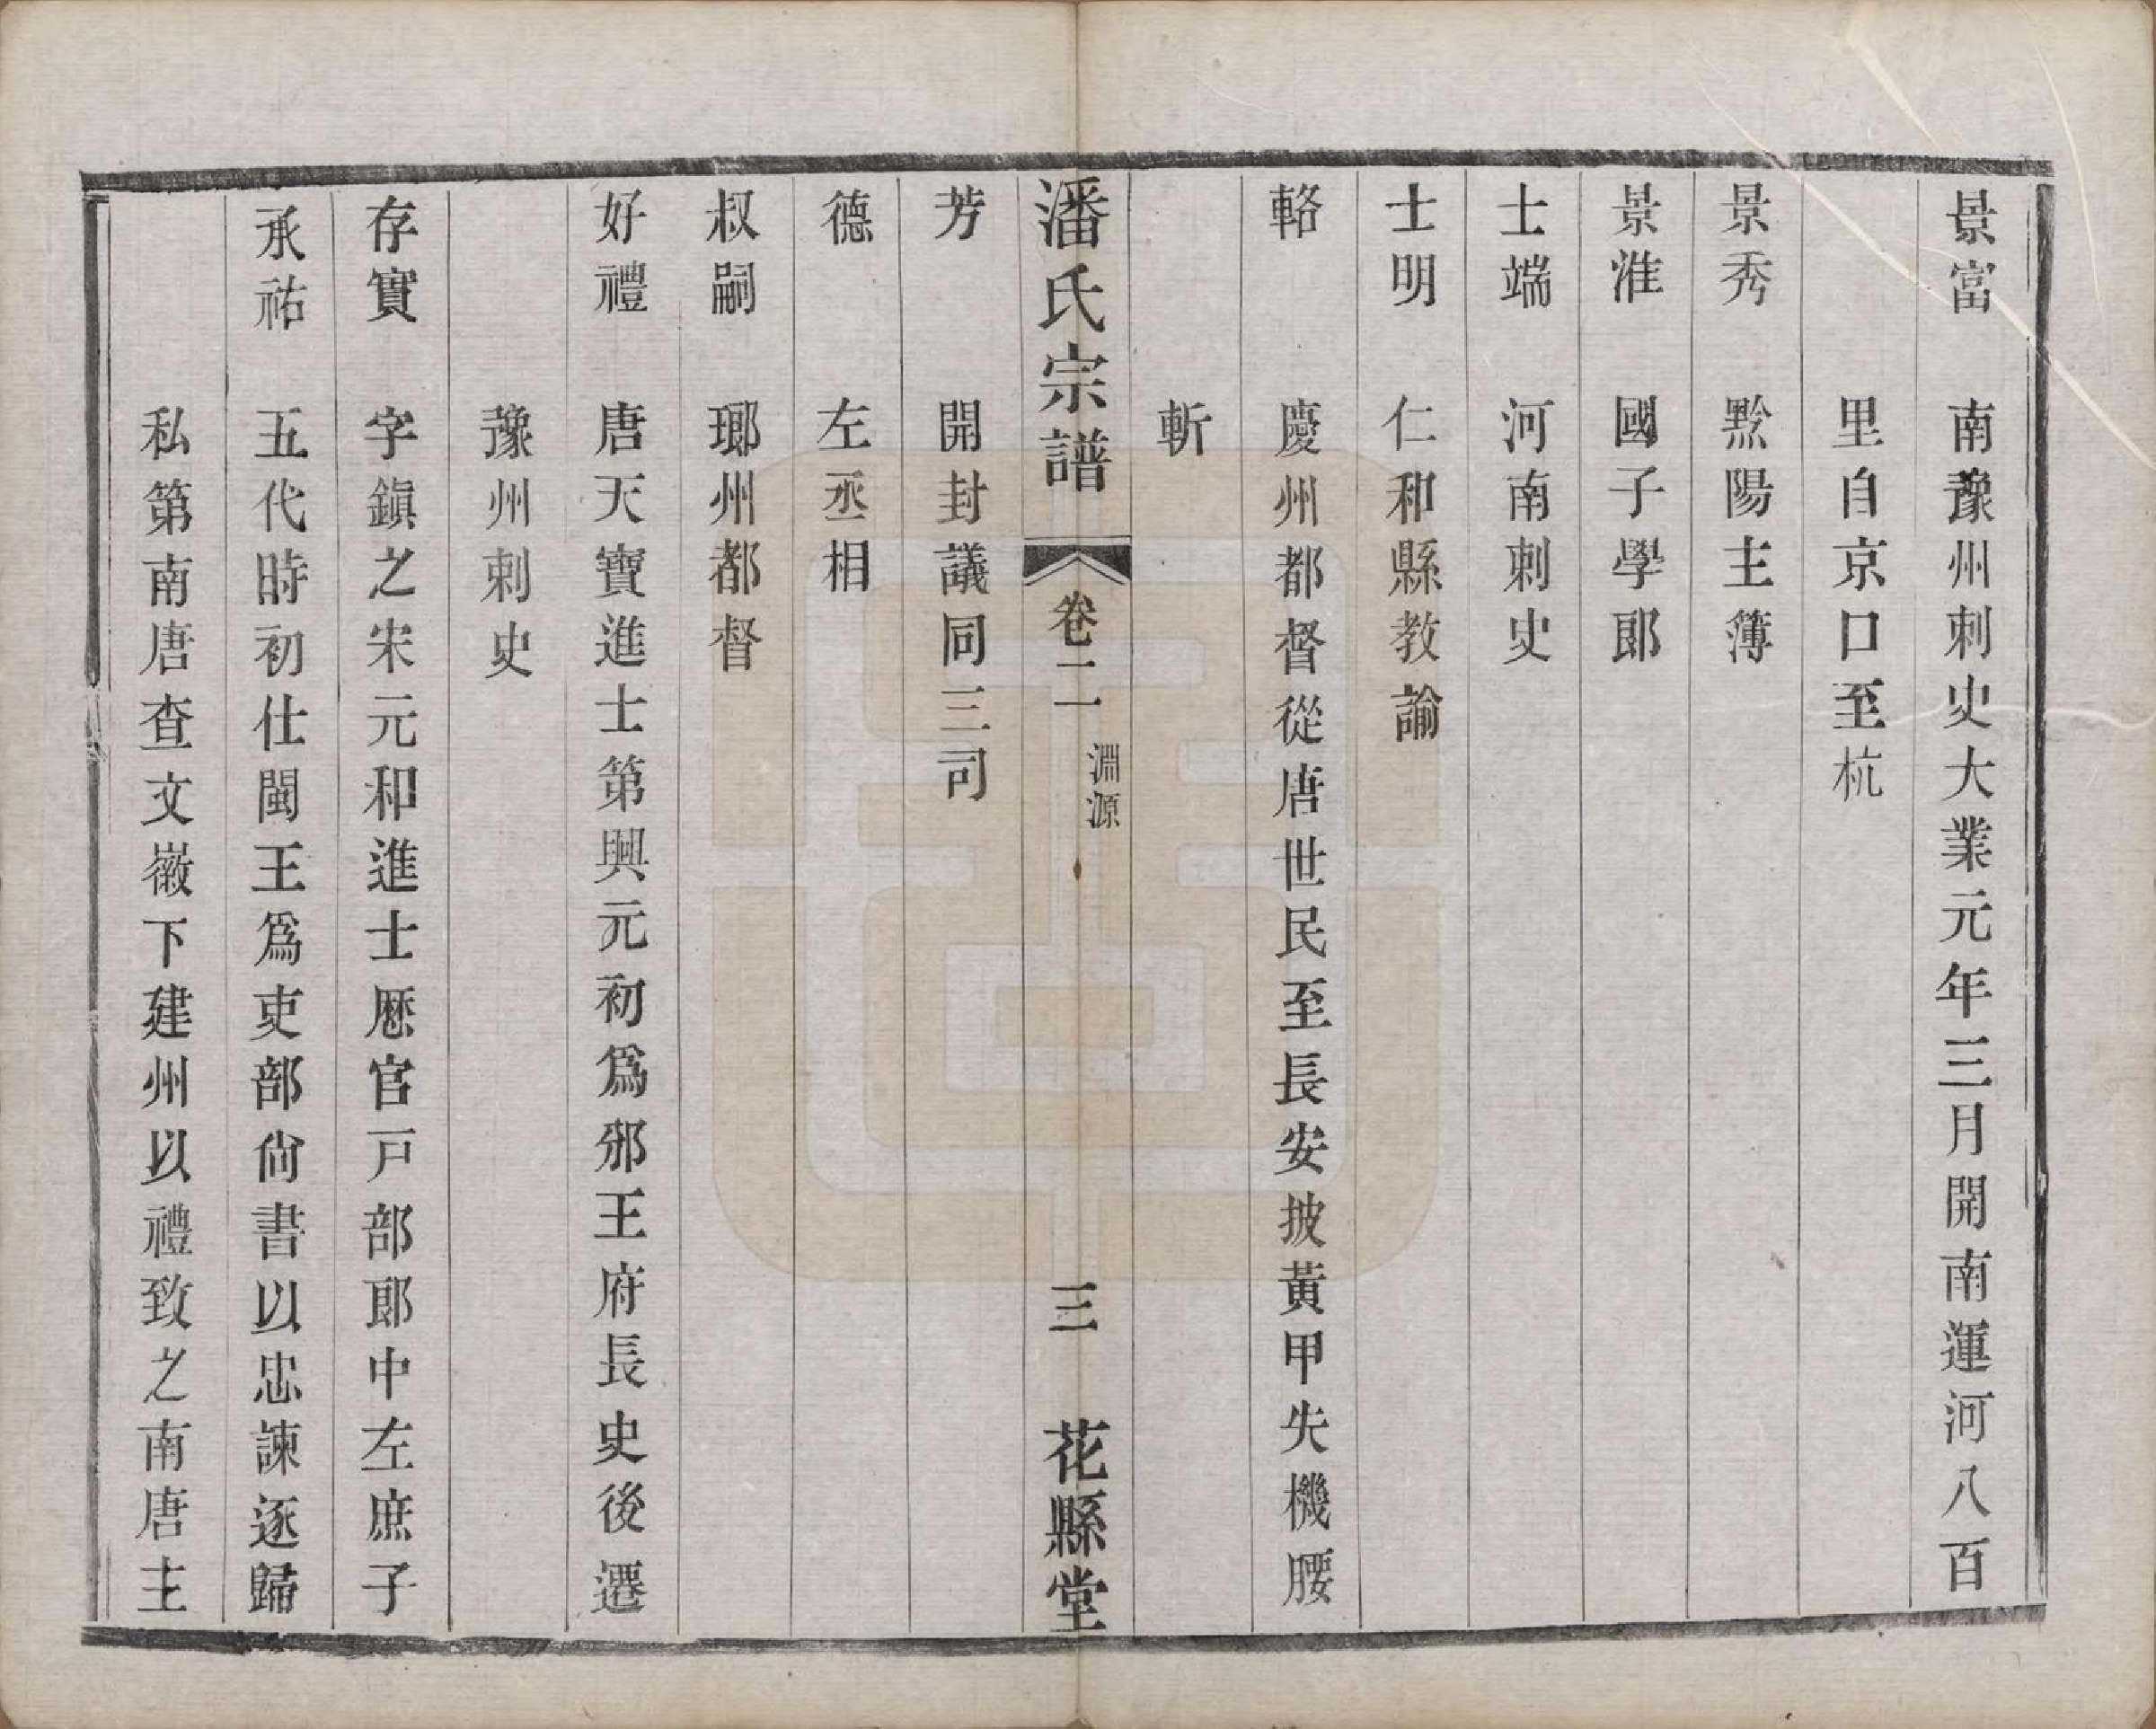 景富　南豫州刺史大業元年三月開南運河八百
里自京口至杭
景秀　黟陽主簿
景淮　國子學郎
士端　河南刺史
士明　仁和縣教諭
輅　慶州都督從唐世民至長安披黃甲失機腰
斬
潘氏宗譜　卷二　淵源　三　花縣堂
芳　開封議同三司
德　左丞相
叔嗣　瑯州都督
好禮　唐天寶進士第興元初爲邠王府長史後遷
豫州刺史
存實　字鎭之宋元和進士歷官戸部郎中左庶子
承祐　五代時初仕閩王爲吏部尙書以忠諫逐歸
私第南唐查文徽下建州以禮致之南唐主